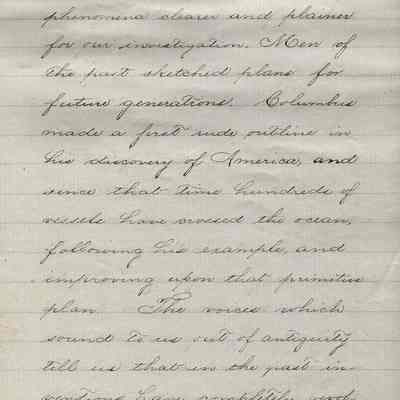 phenomena clearer and plainer
for our investigation. Men of
the past sketched plans for
future generations. Columbus
made a first rude outline in
his discovery of America, and
since that time hundreds of
vessels have crossed the ocean,
following his example, and
improving upon that primitive
plan. The voices which
sound to us out of antiquity
tell us that in the past in-
ventions have completely